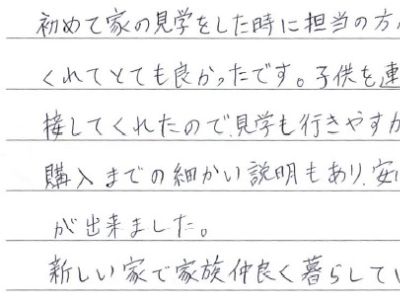 初めて家の見学をした時に担当の方
くれてとても良かったです。子供を連
接してくれたので、見学も行きやすか
購入までの細かい説明もあり、安
が出来ました。
新しい家で家族仲良く暮らしてい